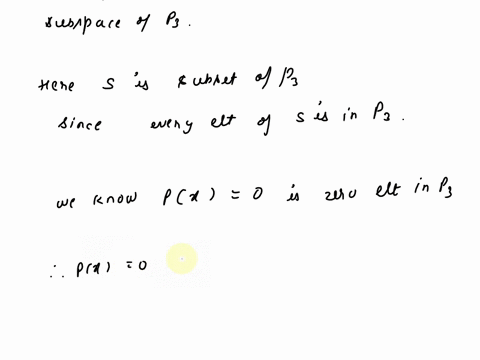 subspace of P3.
Here S is subset of P3
since every elt of S is in P3.
we know P(x) = 0 is zero elt in P3
∴ P(x) = 0